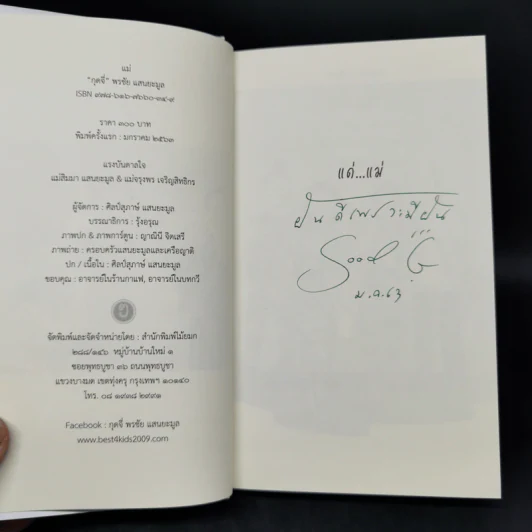 แม่
"กุดจี่" พรชัย แสนยะมูล
ISBN ๙๗๘-๖๑๖-๗๖๖๐-๓๔-๙
ราคา ๓๐๐ บาท
พิมพ์ครั้งแรก : มกราคม ๒๕๖๓
แรงบันดาลใจ
แม่สิมมา แสนยะมูล & แม่จรุงพร เจริญสิทธิกร
ผู้จัดการ : ศิลป์สุภาษ์ แสนยะมูล
บรรณาธิการ : รุ้งอรุณ
ภาพปก & ภาพการ์ตูน : ญาณินี จิตเสรี
ภาพถ่าย : ครอบครัวแสนยะมูลและเครือญาติ
ปก / เนื้อใน : ศิลป์สุภาษ์ แสนยะมูล
ขอบคุณ : อาจารย์ในร้านกาแฟ, อาจารย์ในบทกวี
จัดพิมพ์และจัดจำหน่ายโดย : สำนักพิมพ์ไม้ยมก
๒๘๘/๑๔๖ หมู่บ้านบ้านใหม่ ๑
ซอยพุทธบูชา ๓๖ ถนนพุทธบูชา
แขวงบางมด เขตทุ่งครุ กรุงเทพฯ ๑๐๑๔๐
โทร. ๐๘ ๑๙๓๘ ๒๙๙๑
Facebook : กุดจี่ พรชัย แสนยะมูล
www.best4kids2009.com
แด่...แม่
ฝันดีเพราะมีฝัน
Good G
ม.ค.63